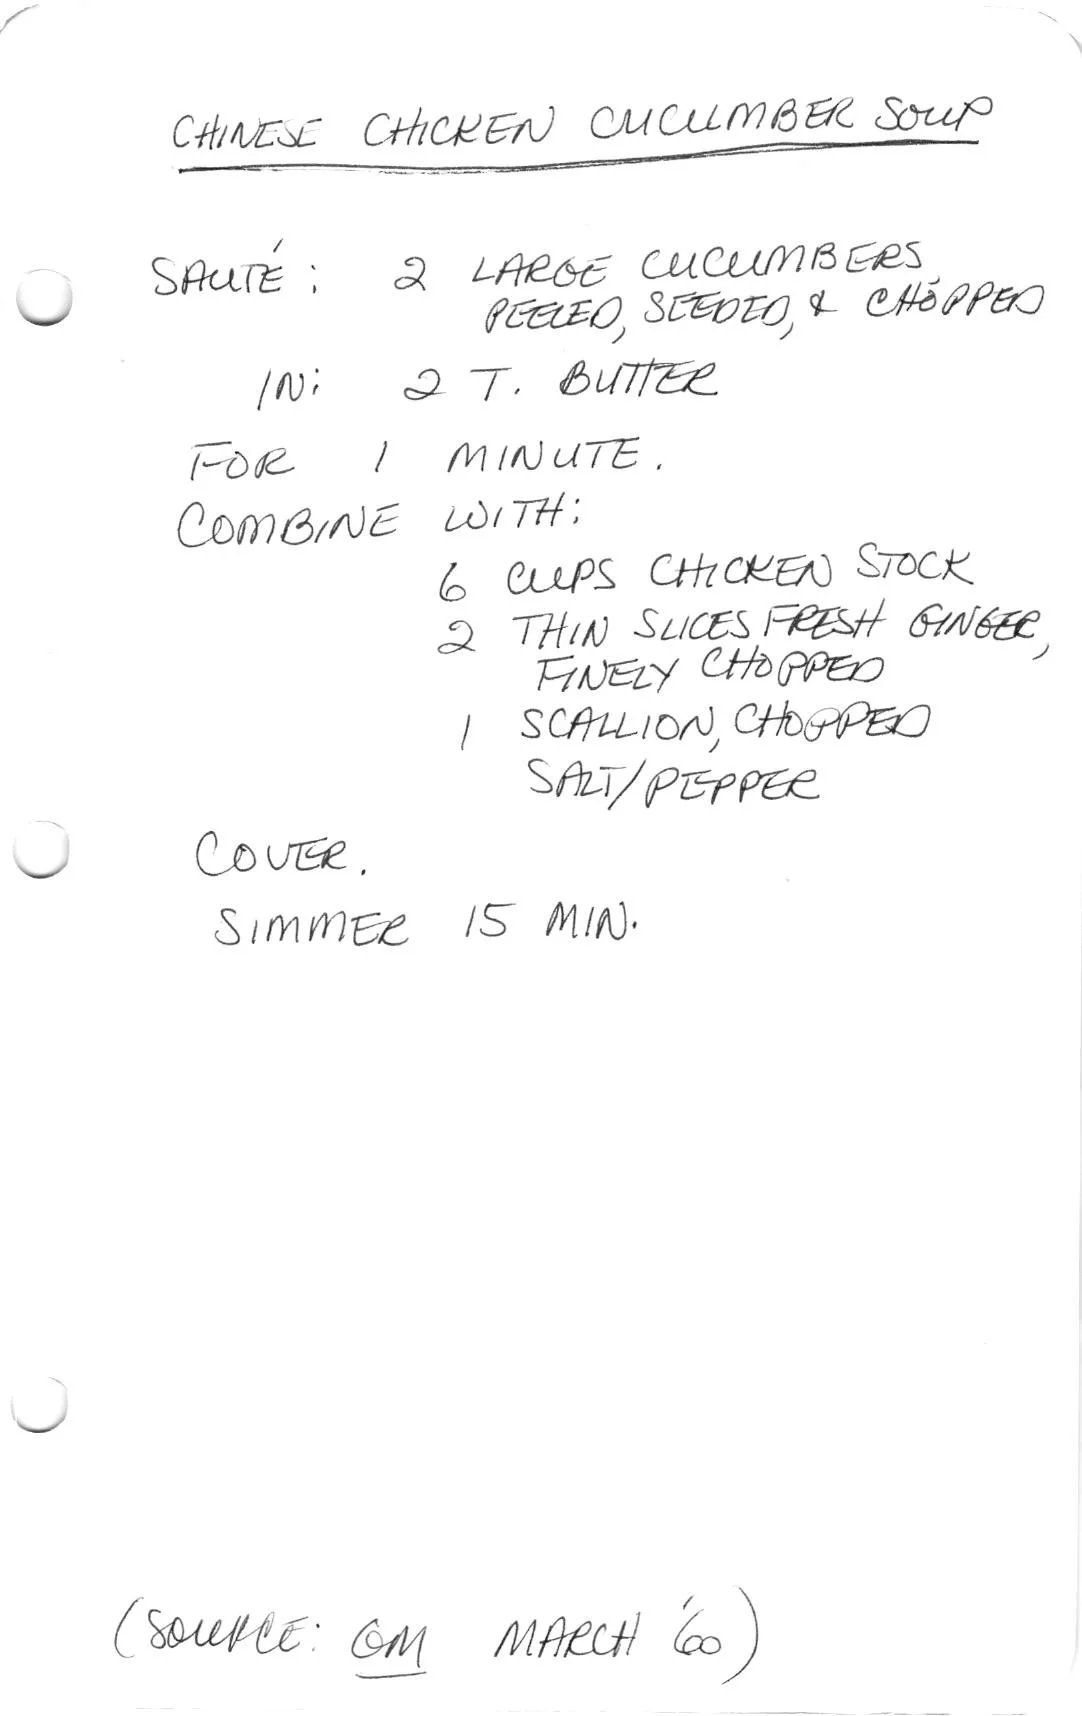 CHINESE CHICKEN CUCUMBER SOUP
SAUTÉ: 2 LARGE CUCUMBERS,
PEELED, SEEDED, & CHOPPED
IN: 2 T. BUTTER
FOR 1 MINUTE.
COMBINE WITH:
6 CUPS CHICKEN STOCK
2 THIN SLICES FRESH GINGER,
FINELY CHOPPED
1 SCALLION, CHOPPED
SALT/PEPPER
COVER.
SIMMER 15 MIN.
(SOURCE: GM MARCH '60)